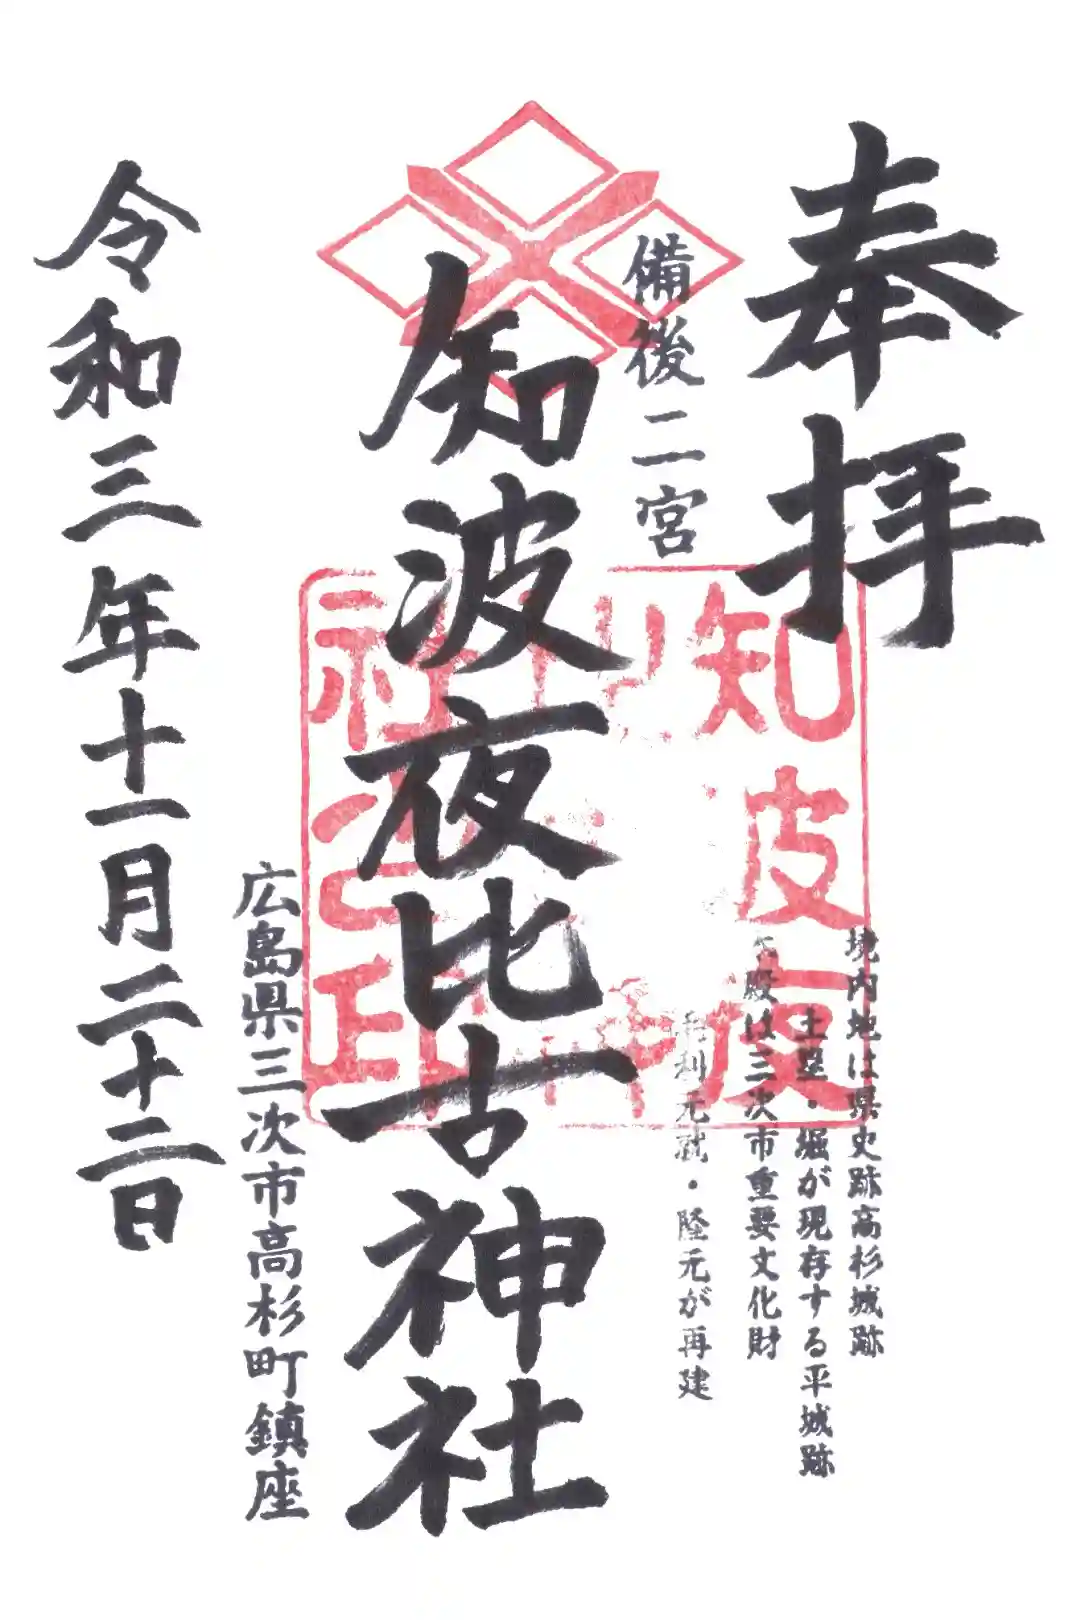 奉拝
境内地は県史跡高杉城跡
土塁・堀が現存する平城跡
殿は三次市重要文化財
毛利元就・隆元が再建
備後二宮
知波夜比古神社
広島県三次市高杉町鎮座
令和三年十一月二十二日
知皮
社之印